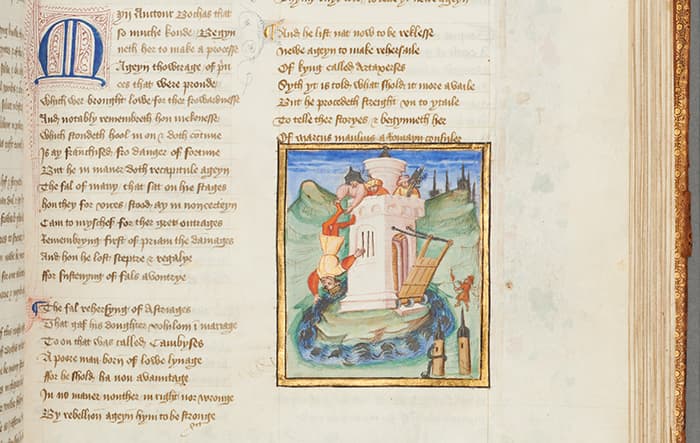 Myn Auctour Bochas that
so muche koude Begyn
neth her to make a processe
Ageyn thowtrage of prin
ces that were proude
Which wer brought lowe for ther frowardnesse
And notably remembreth hou meknesse
Which stondeth hool in on & doth contune
Is ay franchised fro danger of fortune
But he in maner doth recapitule ageyn
The fal of many that sit on hie stages
Hou they for vices stood ay in noncerteyn
Cam to myschef for ther gret outrages
Remembryng first of priam the damages
And hou he lost sceptre & regalye
ffor susteynyng of fals avoutrye
The fal rehersyng of Astriages
That gaf his doughter whilom i mariage
To on that was called Cambyses
A pore man born of lowe lynage
ffor he shold ha non avauntage
In no maner nouther in right nor wronge
By rebellion ageyn hym to be stronge
And he list nat now to be reklesse
Newe ageyn to make rehersaile
Of kyng called Artaxerses
Syth yt is told what shold it more availe
But he procedeth streght vn to ytaile
To telle ther storyes & begynneth her
Of marcus manlius a Romayn consuler